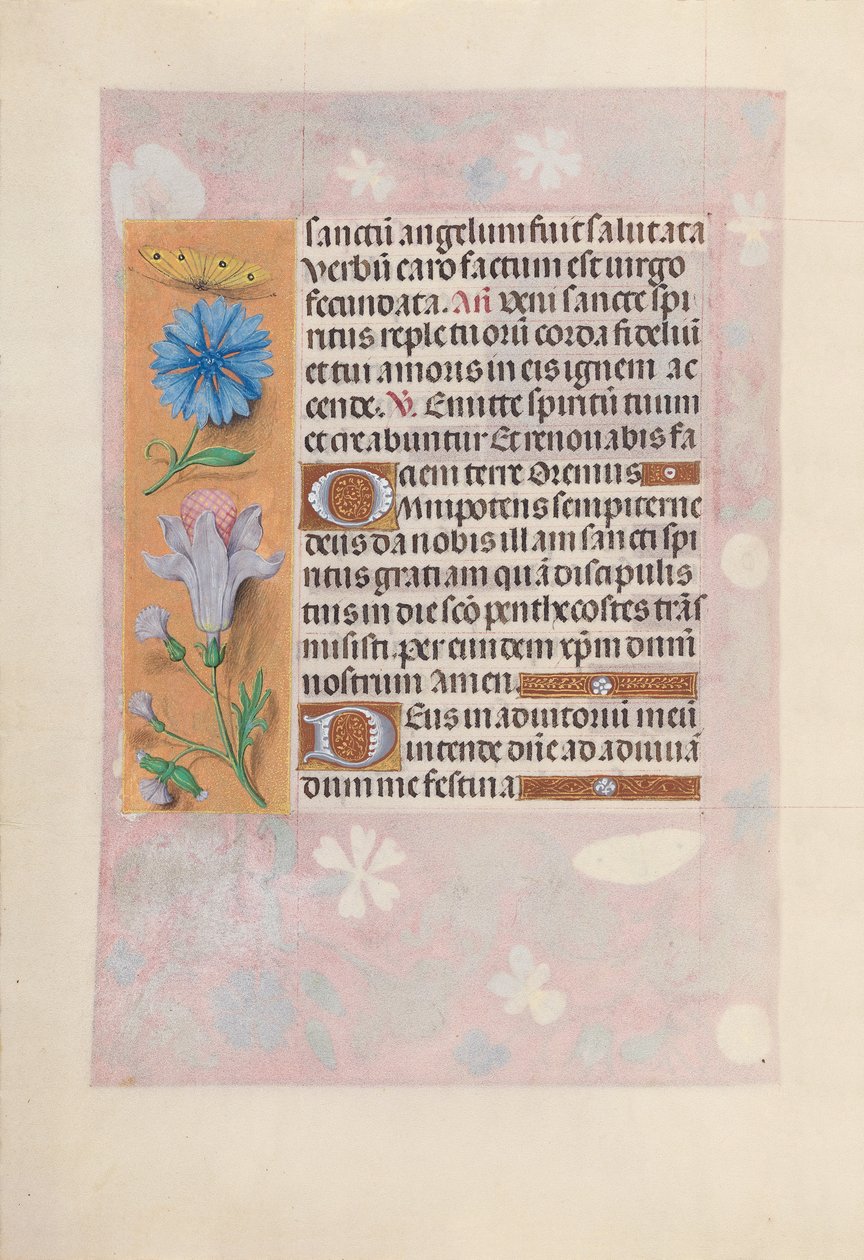 sanctū angelum fuit salutata
verbū caro factum est uirgo
fecundata. Añ Veni sancte spi
ritus reple tuorū corda fideliū
et tui amoris in eis ignem ac
cende. V̄. Emitte spiritū tuum
et creabuntur Et renouabis fa
ciem terre Oremus
Omnipotens sempiterne
deus da nobis illam sancti spi
ritus gratiam quā discipulis
tuis in die scō penthecostes trās
misisti. per eundem xp̄m dnm̄
nostrum Amen.
Deus in adiutoriū meū
intende dn̄e ad adiuuā
dum me festina